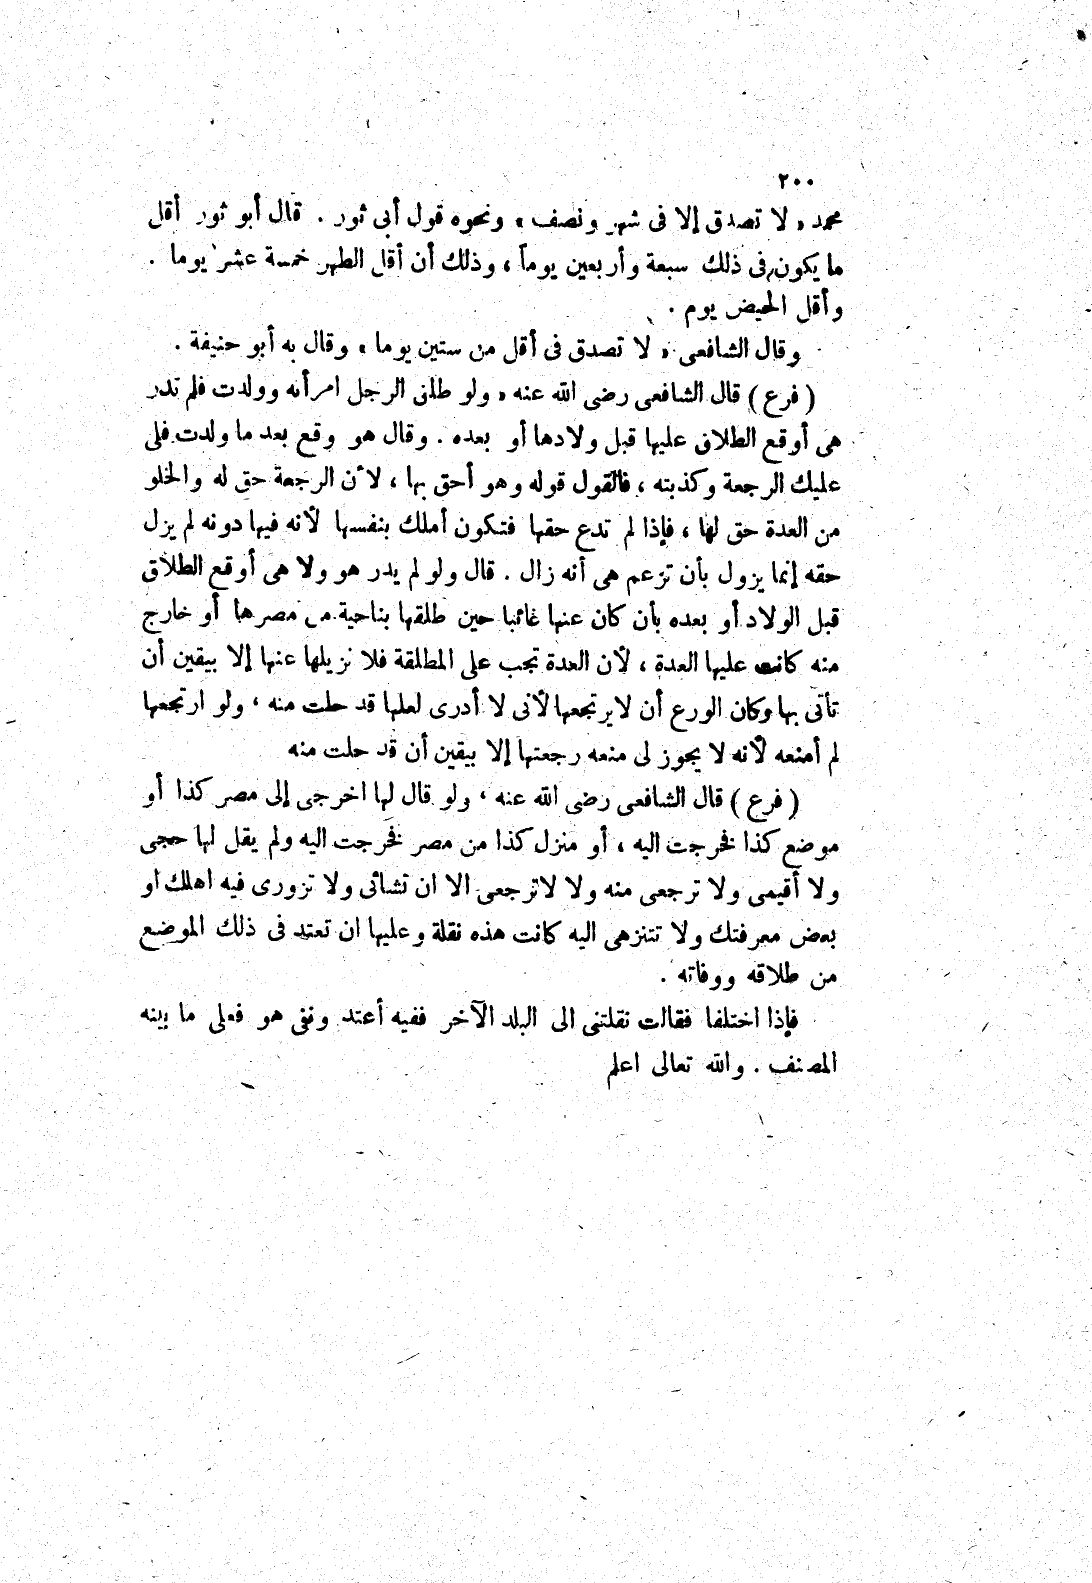 ٢٠٠
محمد « لا تصدق إلا فى شهر ونصف » ونحوه قول أبى ثور . قال أبو ثور أقل
ما يكون فى ذلك سبعة وأربعين يوماً ، وذلك أن أقل الطهر خمسة عشر يوما .
وأقل الحيض يوم .
وقال الشافعى « لا تصدق فى أقل من ستين يوما » وقال به أبو حنيفة .
( فرع ) قال الشافعى رضى الله عنه « ولو طلق الرجل امرأته وولدت فلم تدر
هى أوقع الطلاق عليها قبل ولادها أو بعده . وقال هو وقع بعد ما ولدت فلى
عليك الرجعة وكذبته ، فالقول قوله وهو أحق بها ، لأن الرجعة حق له والخلو
من العدة حق لها ، فإذا لم تدع حقها فتكون أملك بنفسها لأنه فيها دونه لم يزل
حقه إنما يزول بأن تزعم هى أنه زال . قال ولو لم يدر هو ولا هى أوقع الطلاق
قبل الولاد أو بعده بأن كان عنها غائبا حين طلقها بناحية من مصرها أو خارج
منه كانت عليها العدة ، لأن العدة تجب على المطلقة فلا نزيلها عنها إلا بيقين أن
تأتى بها وكان الورع أن لا يرتجعها لأنى لا أدرى لعلها قد حلت منه ، ولو ارتجعها
لم أمنعه لأنه لا يجوز لى منعه رجعتها إلا بيقين أن قد حلت منه
( فرع ) قال الشافعى رضى الله عنه ، ولو قال لها اخرجى إلى مصر كذا أو
موضع كذا فخرجت اليه ، أو منزل كذا من مصر فخرجت اليه ولم يقل لها حجى
ولا أقيمى ولا ترجعى منه ولا لاترجعى الا ان تشائى ولا تزورى فيه اهلك او
بعض معرفتك ولا تتنزهى اليه كانت هذه نقلة وعليها ان تعتد فى ذلك الموضع
من طلاقه ووفاته .
فإذا اختلفا فقالت نقلتنى الى البلد الآخر ففيه أعتد ونفى هو فعلى ما بينه
المصنف . والله تعالى اعلم